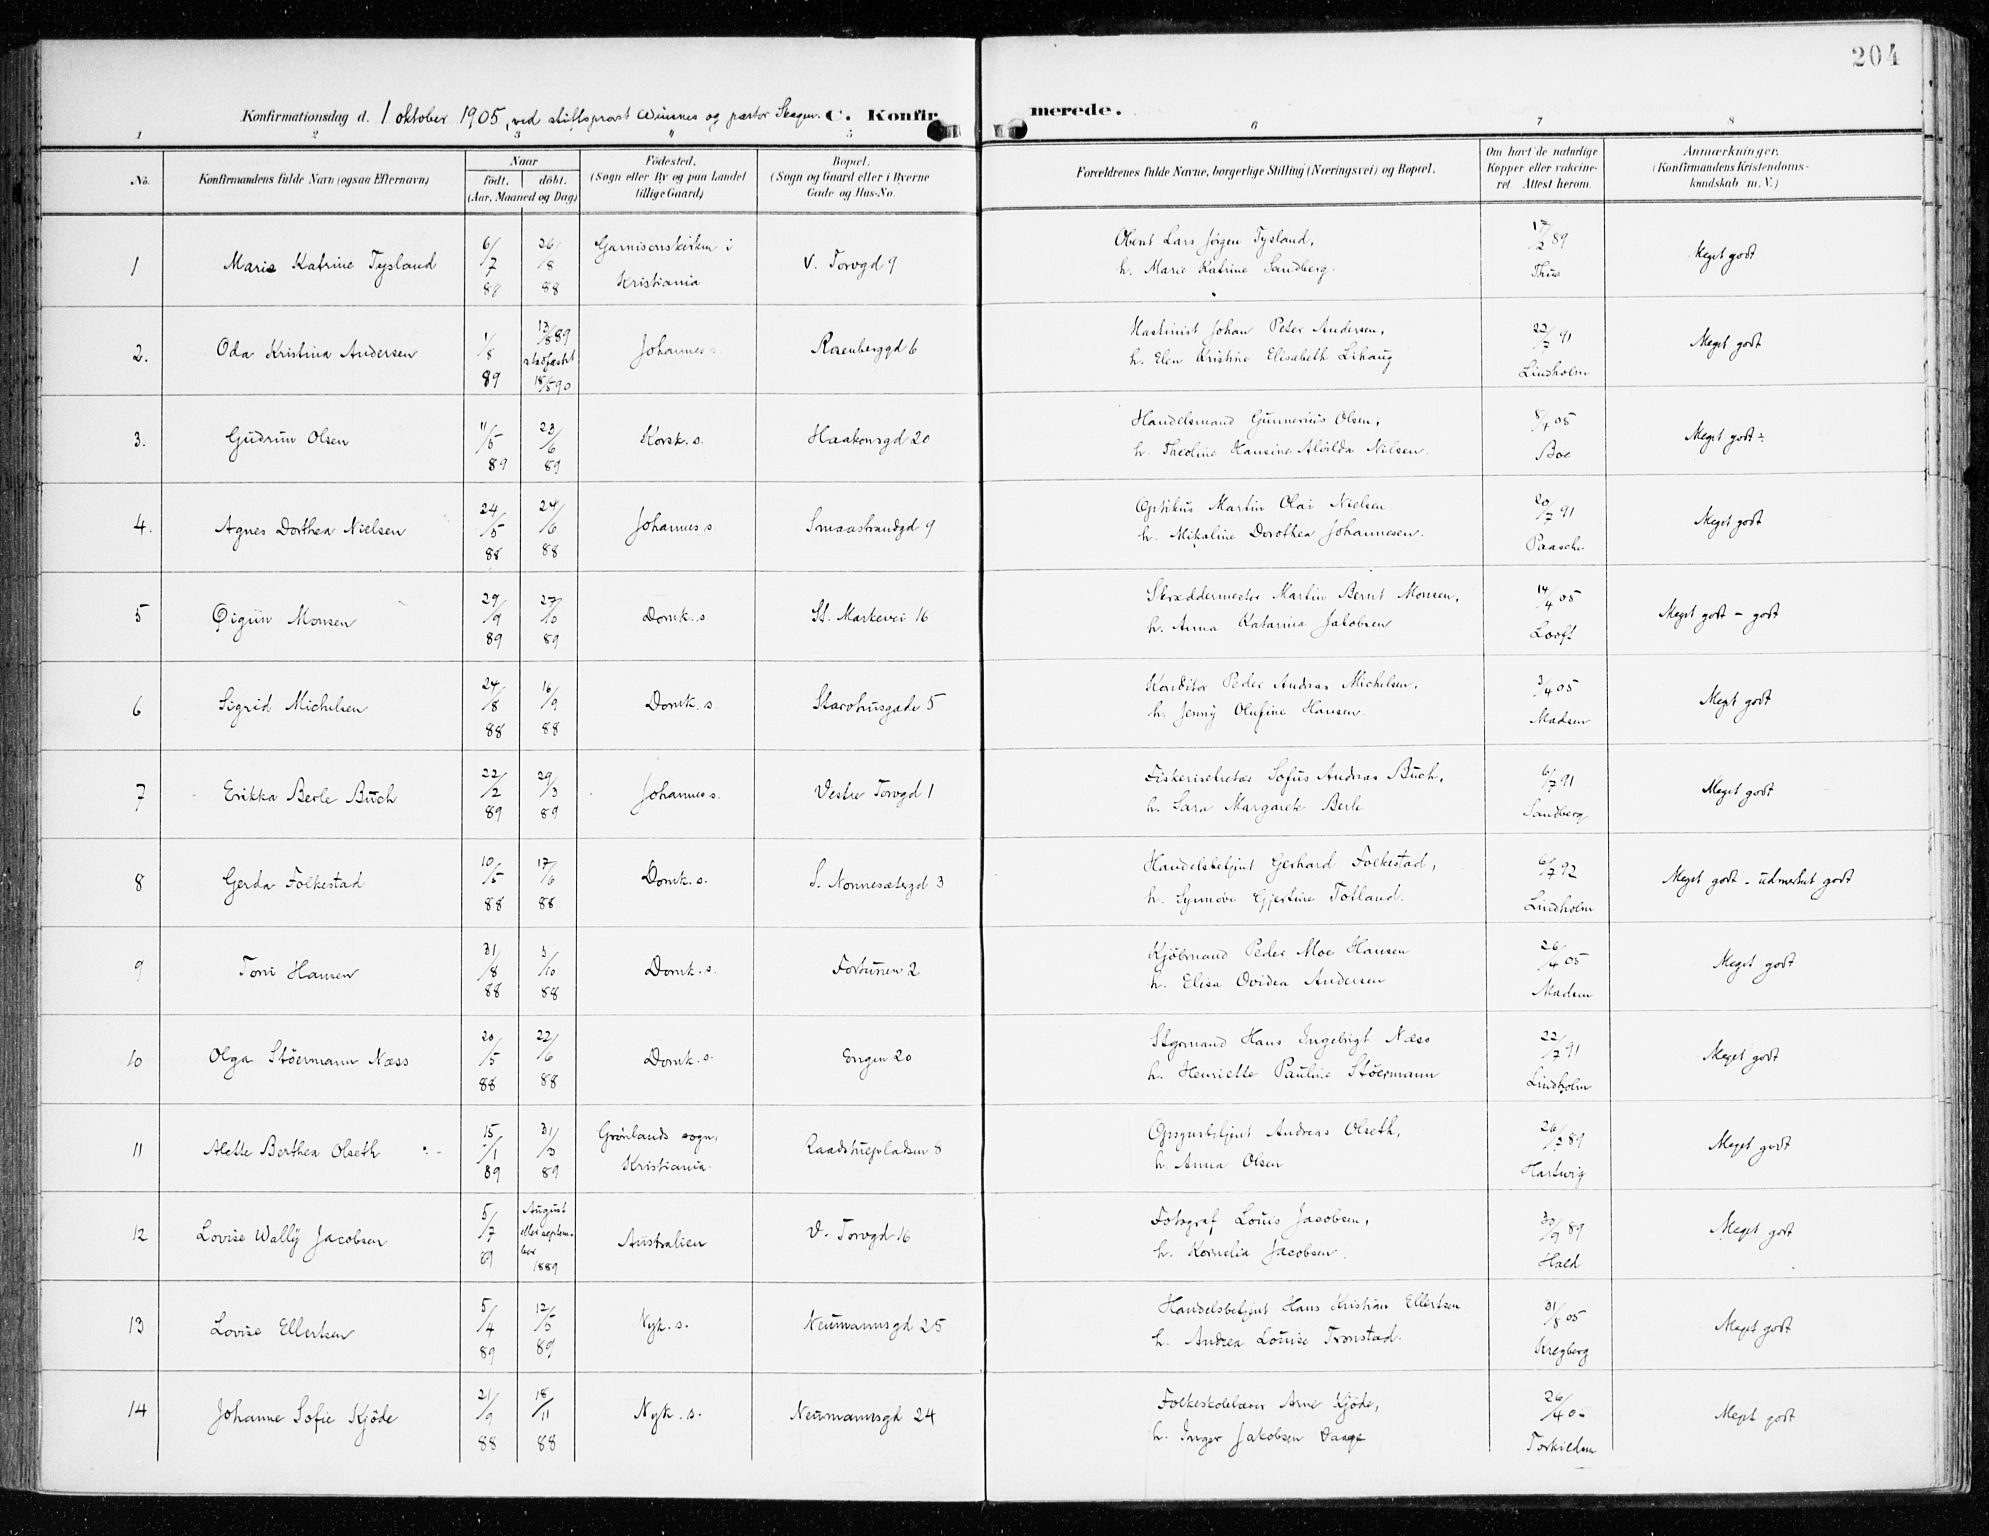 204
Konfirmationsdag d. 1 oktober 1905, ved stiftsprovst og pastor C. Konfirmerede.
1 2 3 4 5 6 7 8
No. Konfirmandens fulde Navn (ogsaa Efternavn) Naar födt. döbt. (Aar, Maaned og Dag) Födested. (Sogn eller By og paa Landet tillige Gaard) Bopæl. (Sogn og Gaard eller i Byerne Gade og Hus-No. Forældrenes fulde Navne, borgerlige Stilling (Næringsvei) og Bopæl. Om havt de naturlige Kopper eller vakcineret. Attest herom. Anmærkninger. (Konfirmandens Kristendomskundskab m. V.)
1 Marie Katrine Tysland 6/7 88 26/8 88 Garnisonskirken i Kristiania V. Torvgd 9 Lars Jörgen Tysland, h. Marie Katrine Sandberg. 89 Meget godt
2. Oda Kristina Andersen 1/8 89 13/8 89 stadfæstet 18/5 90 Johannes s. Rosenberggd 6 Maskinist Johan Peter Andersen, h. Elen Kristine Elisabeth Lihaug 22/7 91 Lindholm Meget godt
3. Gudrun Olsen 11/5 89 23/6 89 Korsk. s. Haakonsgd 20 Handelsmand Gunnerius Olsen, h. Theoline Hansine Alvilda Nilsen. 8/4 05 Boe Meget godt ÷
4. Agnes Dorthea Nielsen 24/5 88 24/6 88 Johannes s Smaastrandgd 9 Optikus Martin Olai Nielsen h. Mikaline Dorothea Johannesen. 20/7 91 Paasche Meget godt
5 Monsen 29/9 89 27/10 89 Domk. s St. Markevei 16 Skræddermester Martin Bernt Monsen, h. Anna Katarina Jakobsen 14/4 05 Looft Meget godt - godt
6 Sigrid Michelsen 24/8 88 16/9 88 Domk. s. Starvhusgade 5 Konditor Peder Andreas Michelsen, h. Jenny Olufine Hansen. 3/4 05 Madsen Meget godt
7 Erikka Berle Buch 22/2 89 29/3 89 Johannes s. Vestre Torvgd 1 Fiskerisekretær Sofus Andreas Buch, h. Sara Margarete Berle 6/7 91 Sandberg Meget godt
8 Gerda Folkestad 10/5 88 17/6 88 Domk. s. S. Nonnesætergd 3 Handelsbetjent Gerhard Folkestad, h. Synnöve Gjertine Totland. 6/7 92 Lindholm Meget godt - udmerket godt
9 Toni Hansen 31/8 88 /10 88 Domk. s. Fortunen 2 Kjöbmand Peder Moe Hansen h. Elisa Ovidea Andersen 26/4 05 Madsen Meget godt
10 Olga Stöermann Næss 20/5 88 22/6 88 Domk. s. Engen 20 Hans Ingebrigt Næss h. Henriette Pauline Stöermann 22/7 91 Lindholm Meget godt
11 Alette Berthea Olseth 15/1 89 31/3 89 Grönlands sogn, Kristiania. Raadstuepladsen 8 Opsynsbetjent Andreas Olseth, h. Anna Olsen 89 Hartwig Meget godt
12 Lovise Wally Jacobsen 5/7 89 August eller september 1889 Australien V. Torvgd 16 Fotograf Louis Jacobsen, h. Kornelia Jacobsen. 30/9 89 Hald Meget godt
13 Lovise Ellertsen 5/4 89 12/5 89 Nyk. s. Neumannsgd 25 Handelsbetjent Hans Kristian Ellertsen h. Andrea Louise Tronstad. 31/8 05 Meget godt
14 Johanne Sofie Kjöde 21/9 88 18/11 88 Nyk. s. Neumannsgd 24 Folkeskolelærer Arne Kjöde, h. Inger Jakobsen Daage 26/4 Torkildsen Meget godt